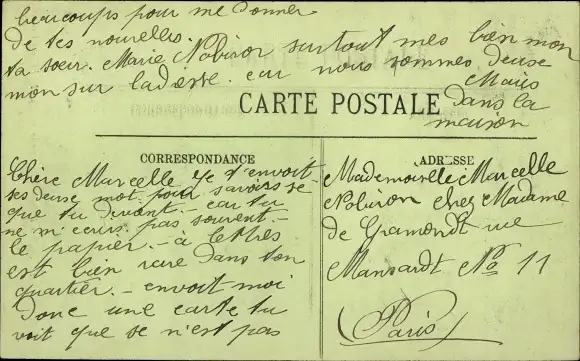 beaucoups pour me donner
de tes nouvelles.
ta soeur. Marie Nobiron surtout mes bien mon
mon sur ladesse. car nous sommes deuse
Maris
dans la
maison
CARTE POSTALE
CORRESPONDANCE
Chère Marcelle Je t'envoit
ses deuse mot. pour savoirs se
que tu devient. - car tu
ne m'ecris pas souvent. -
le papier. - a lettres
est bien rare dans ton
quartier. - envoit moi
donc une carte tu
voit que se n'est pas
ADRESSE
Mademoiselle Marcelle
Nobiron chez Madame
de Gramondt rue
Mansardt No 11
Paris